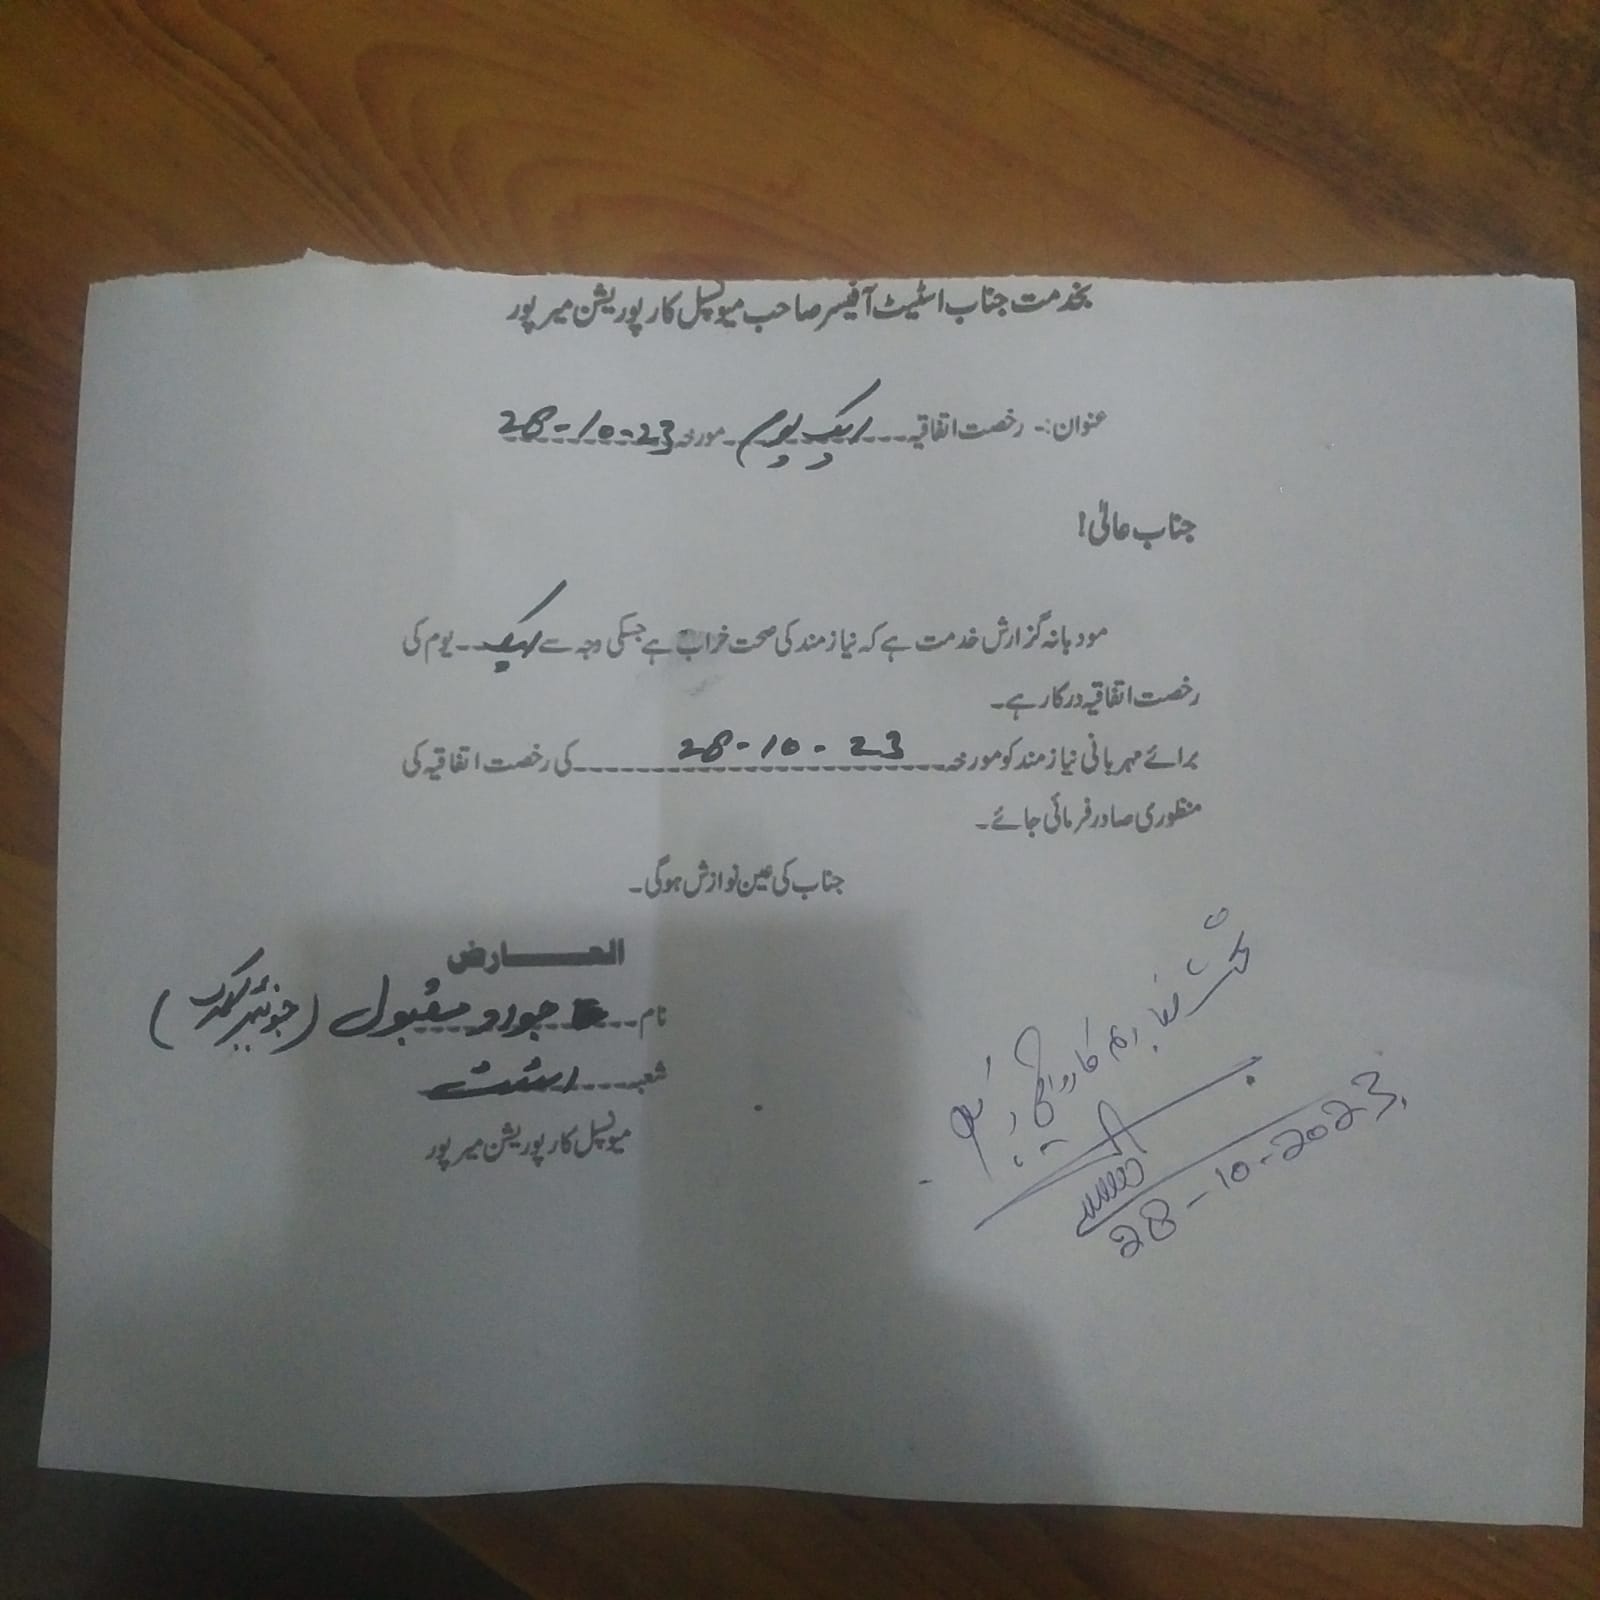 بخدمت جناب اسٹیٹ آفیسر صاحب میونسپل کارپوریشن میرپور
عنوان:۔ رخصت اتفاقیہ ایک یوم مورخہ 28-10-23
جناب عالیٰ!
مودبانہ گزارش خدمت ہے کہ نیازمند کی صحت خراب ہے جسکی وجہ سے ایک یوم کی
رخصت اتفاقیہ درکار ہے۔
برائے مہربانی نیازمند کو مورخہ 28-10-23 کی رخصت اتفاقیہ کی
منظوری صادر فرمائی جائے۔
جناب کی عین نوازش ہوگی۔
العارض
نام مقبول (جونیئر کلرک)
شعبہ اسٹیٹ
میونسپل کارپوریشن میرپور
تحت ضابطہ کارروائی
28-10-2023